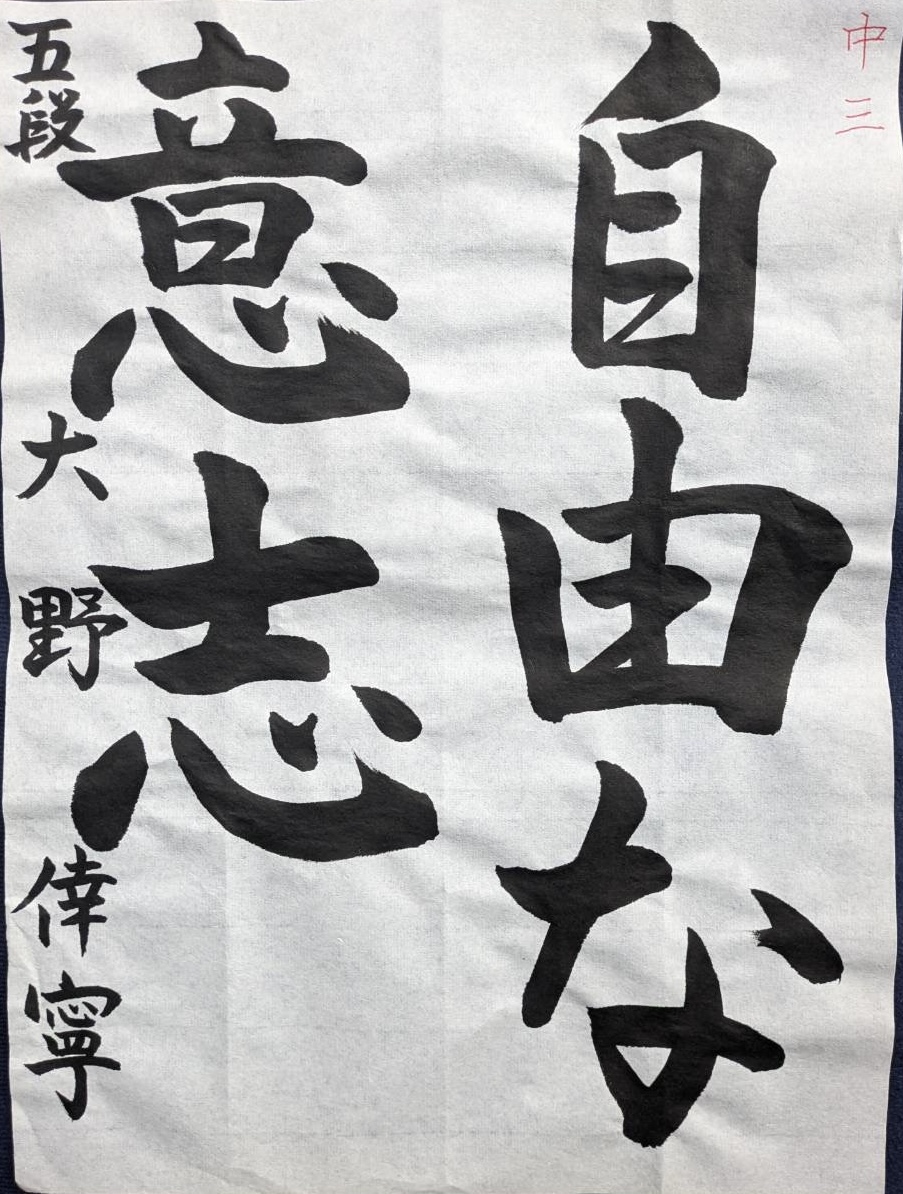 中三
自由な
意志
五段 大野倖寧